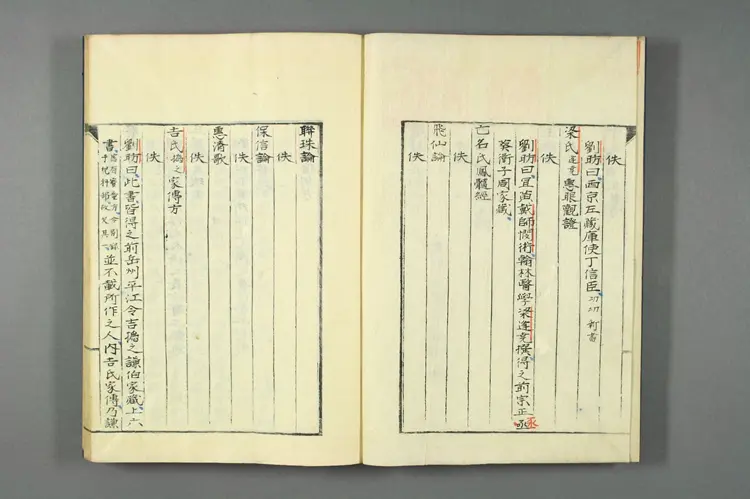 佚
劉昉曰西京左藏庫使丁信臣
梁氏逢堯惠眼觀證
佚
劉昉曰宜黃戴師愰術翰林醫學梁逢堯撰得之前宗正丞
蔡衛子周家藏
亡名氏鳳髓經
佚
飛仙論
佚
聯珠論
佚
保信論
佚
惠濟歌
佚
吉氏撝之家傳方
佚
劉昉曰此書皆得之前岳州平江令吉撝之謙伯家藏上六
書並不載所作之人內吉氏家傳乃謙